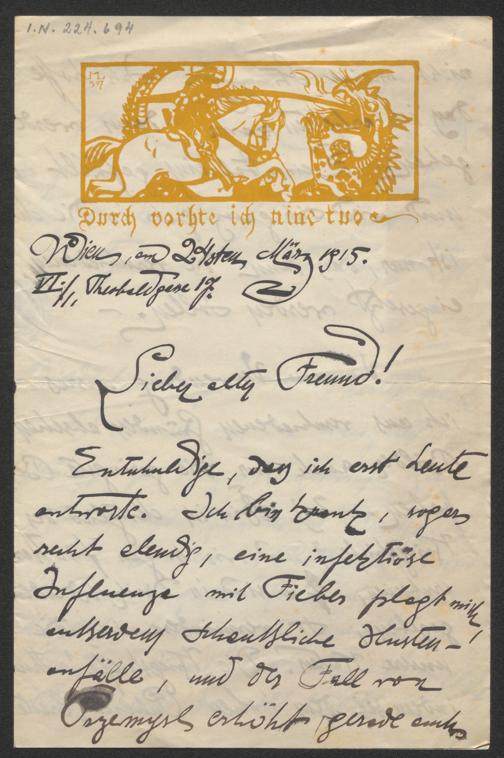 I.N. 224.694
Durch vorhte ich nine tuo
Wien, am 24sten März 1915.
VI./1, Theobaldgasse 17.
Lieber alter Freund!
Entschuldige, dass ich erst heute
antworte. Ich bin krank, sogar
recht elendig, eine infektiöse
Influenza mit Fieber plagt mich,
ausserdem scheußliche Husten-
anfälle, und der Fall von
Przemysl erhöht gerade auch